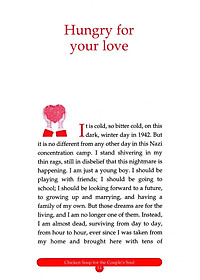 Hungry for
your love
It is cold, so bitter cold, on this
dark, winter day in 1942. But
it is no different from any other day in this Nazi
concentration camp. I stand shivering in my
thin rags, still in disbelief that this nightmare is
happening. I am just a young boy. I should be
playing with friends; I should be going to
school; I should be looking forward to a future,
to growing up and marrying, and having a
family of my own. But those dreams are for the
living, and I am no longer one of them. Instead,
I am almost dead, surviving from day to day,
from hour to hour, ever since I was taken from
my home and brought here with tens of
Chicken Soup for the Couple's Soul